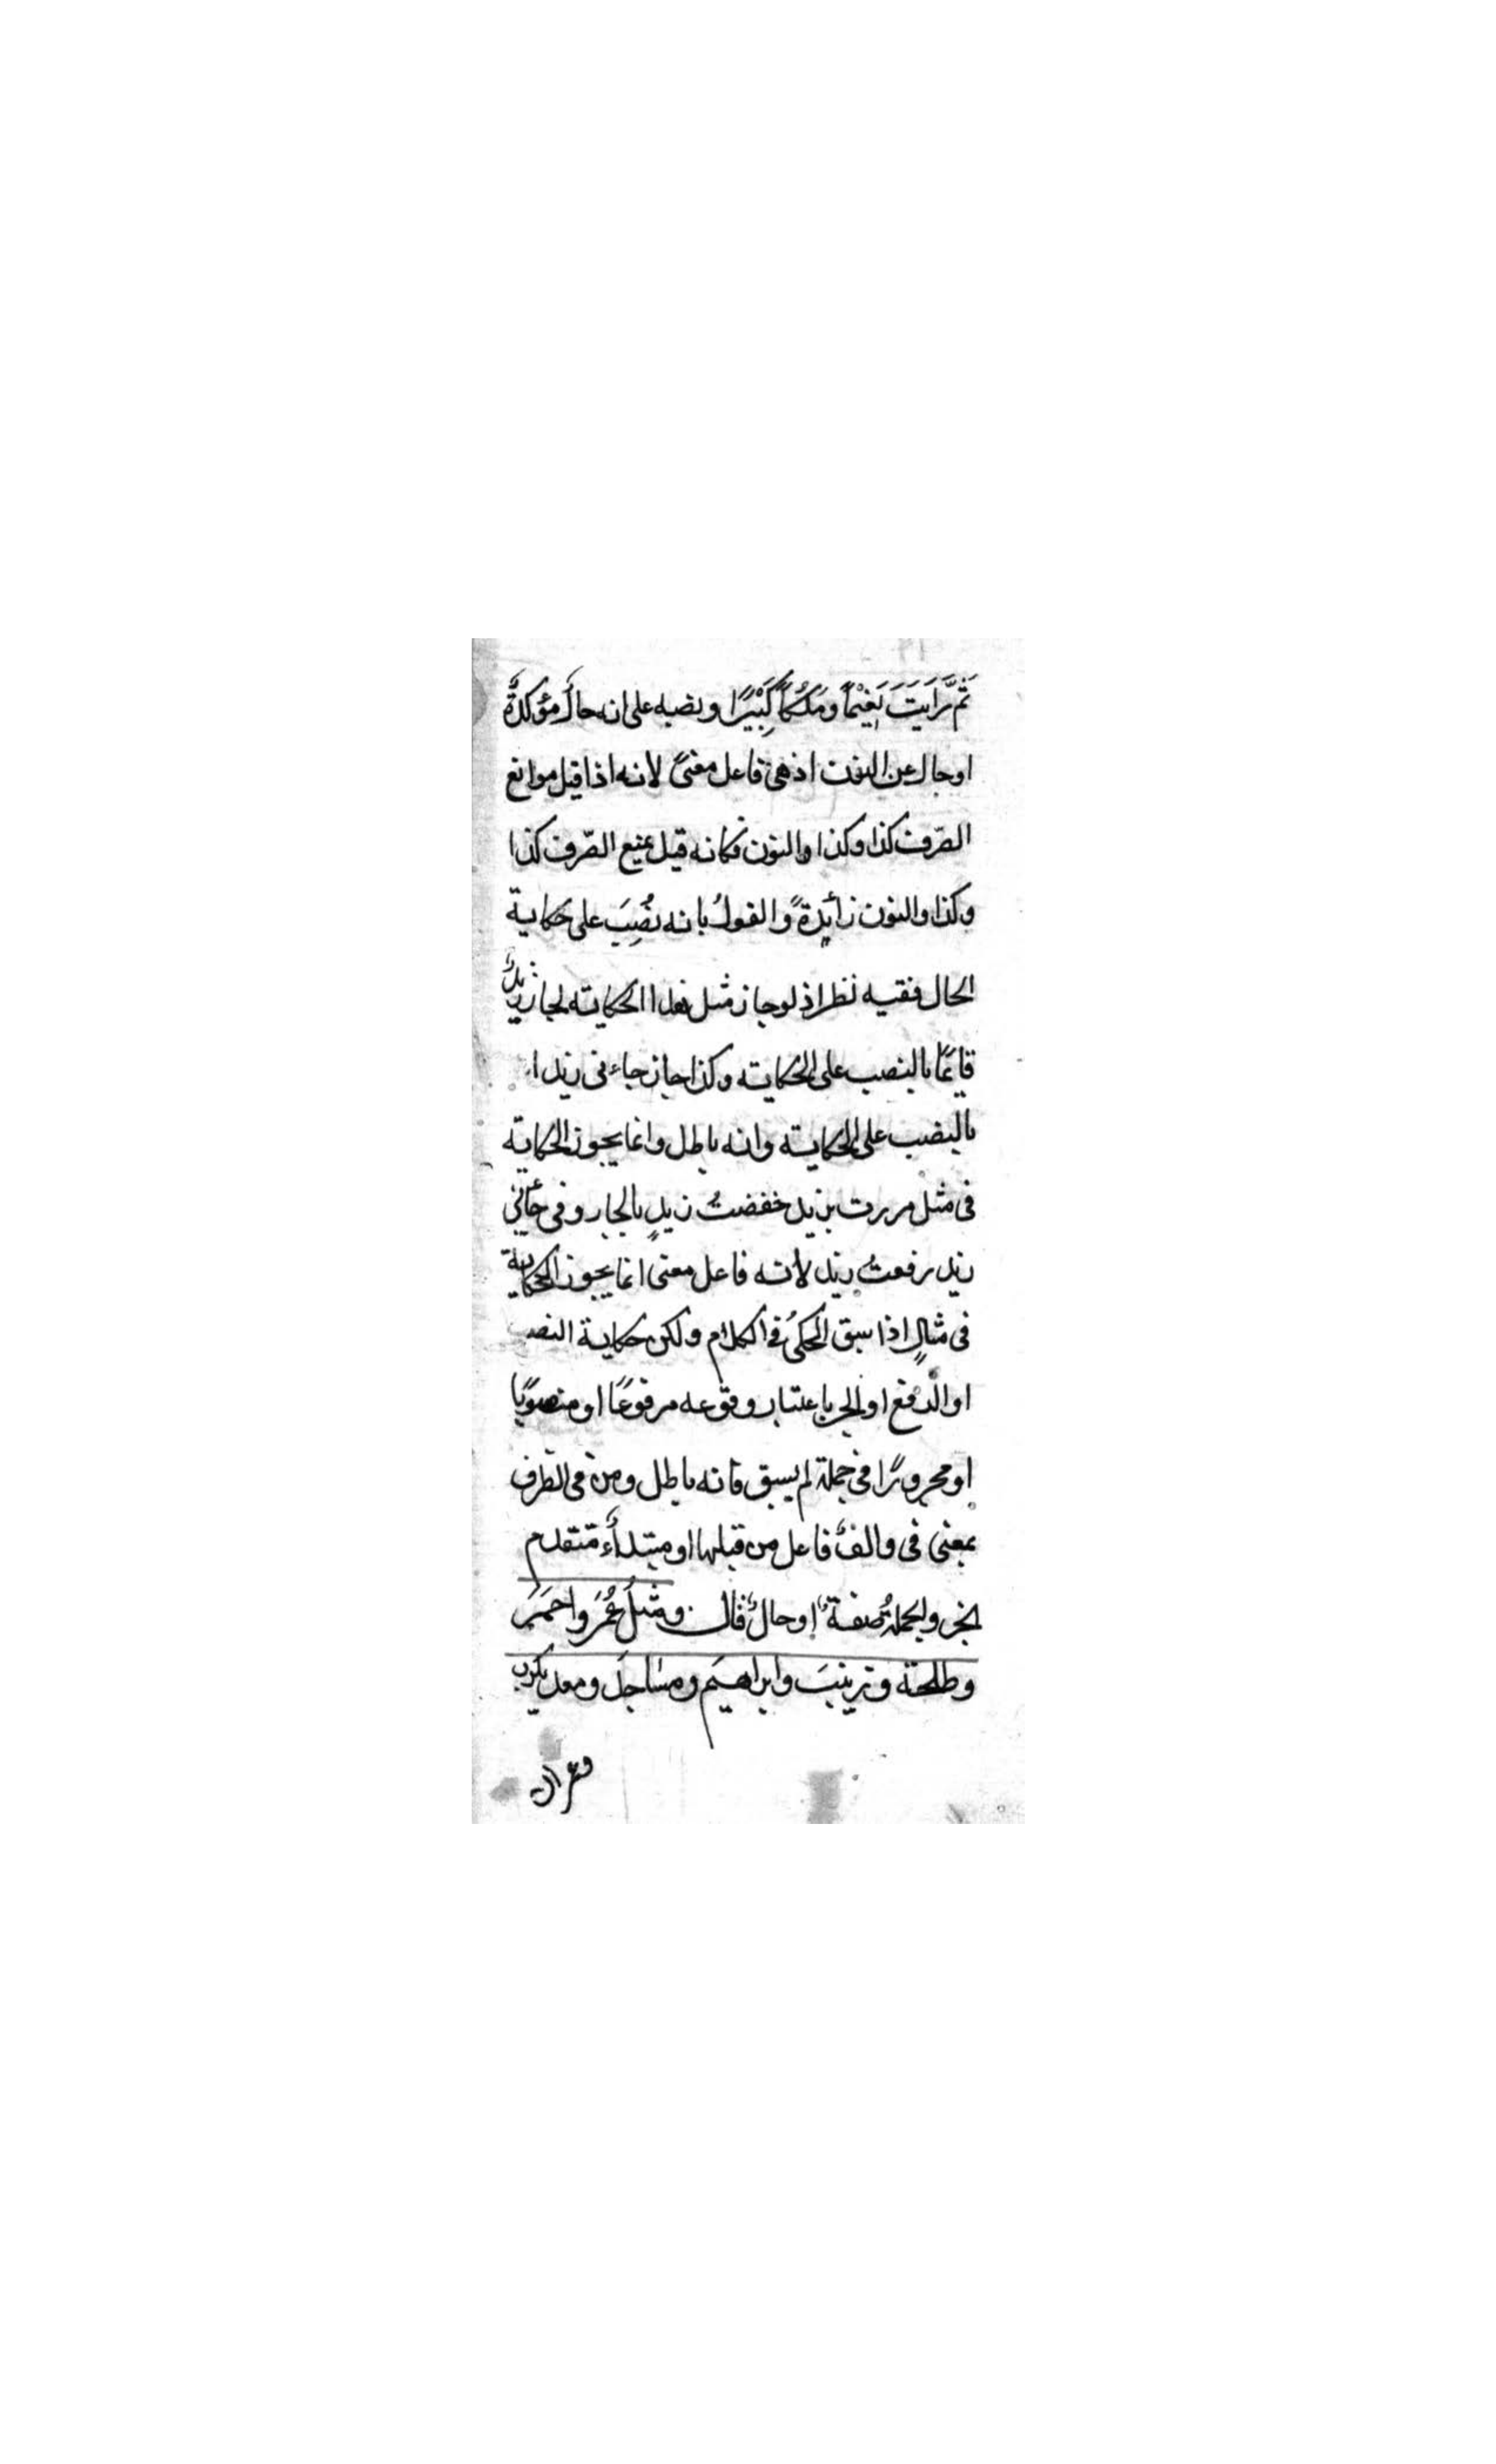 ثَمَّ رَاَيتَ نَعِيْمًا ومَلكًا كَبِيْرًا ونصبه على انه حالٌ مؤكدةٌ
اوحال عن النون اذ هى فاعل معنىً لانه اذا قيل موانع
الصّرف كذا وكذا والنون فكانه قيل يمنع الصّرف كذا
وكذا والنون زائدةً والقولُ بانه نُصِبَ على حكاية
الحال ففيه نظر اذ لوجاز مثل هذا الحكايته لجاز زيدٌ
قايمًا بالنصب على الحكايته وكذا جاز جاءنى زيدا
بالنصب على الحكايته وانه باطل وانما يجوز الحكايته
فى مثل مررت بزيد خفضتُ زيدٍ بالجار وفى جائنى
زيد رفعتُ زيد لانه فاعل معنى انما يجوز الحكاية
فى مثالٍ اذا سبق المحكىُ فى الكلام ولكن حكاية النصب
او الرفع او الجر باعتبار وقوعه مرفوعًا او منصوبًا
او مجرورًا فى جملة لم يسبق فانه باطل ومن فى الظرف
بمعنى فى والفٌ فاعل من قبلها او مبتدأء متقدم
الخبر والجملةُ صفةٌ اوحالٌ قال ومثلُ عُمَرَ واحمَرَ
وطلحة وزينبَ وابراهيمَ ومساجدَ ومعديكرب
وعمران